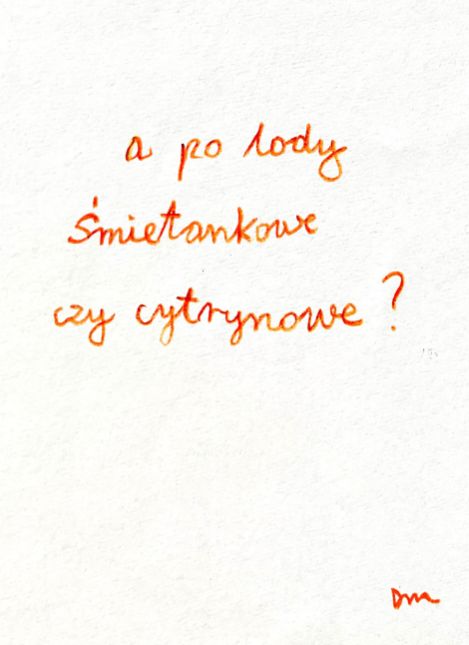 a po lody
śmietankowe
czy cytrynowe?